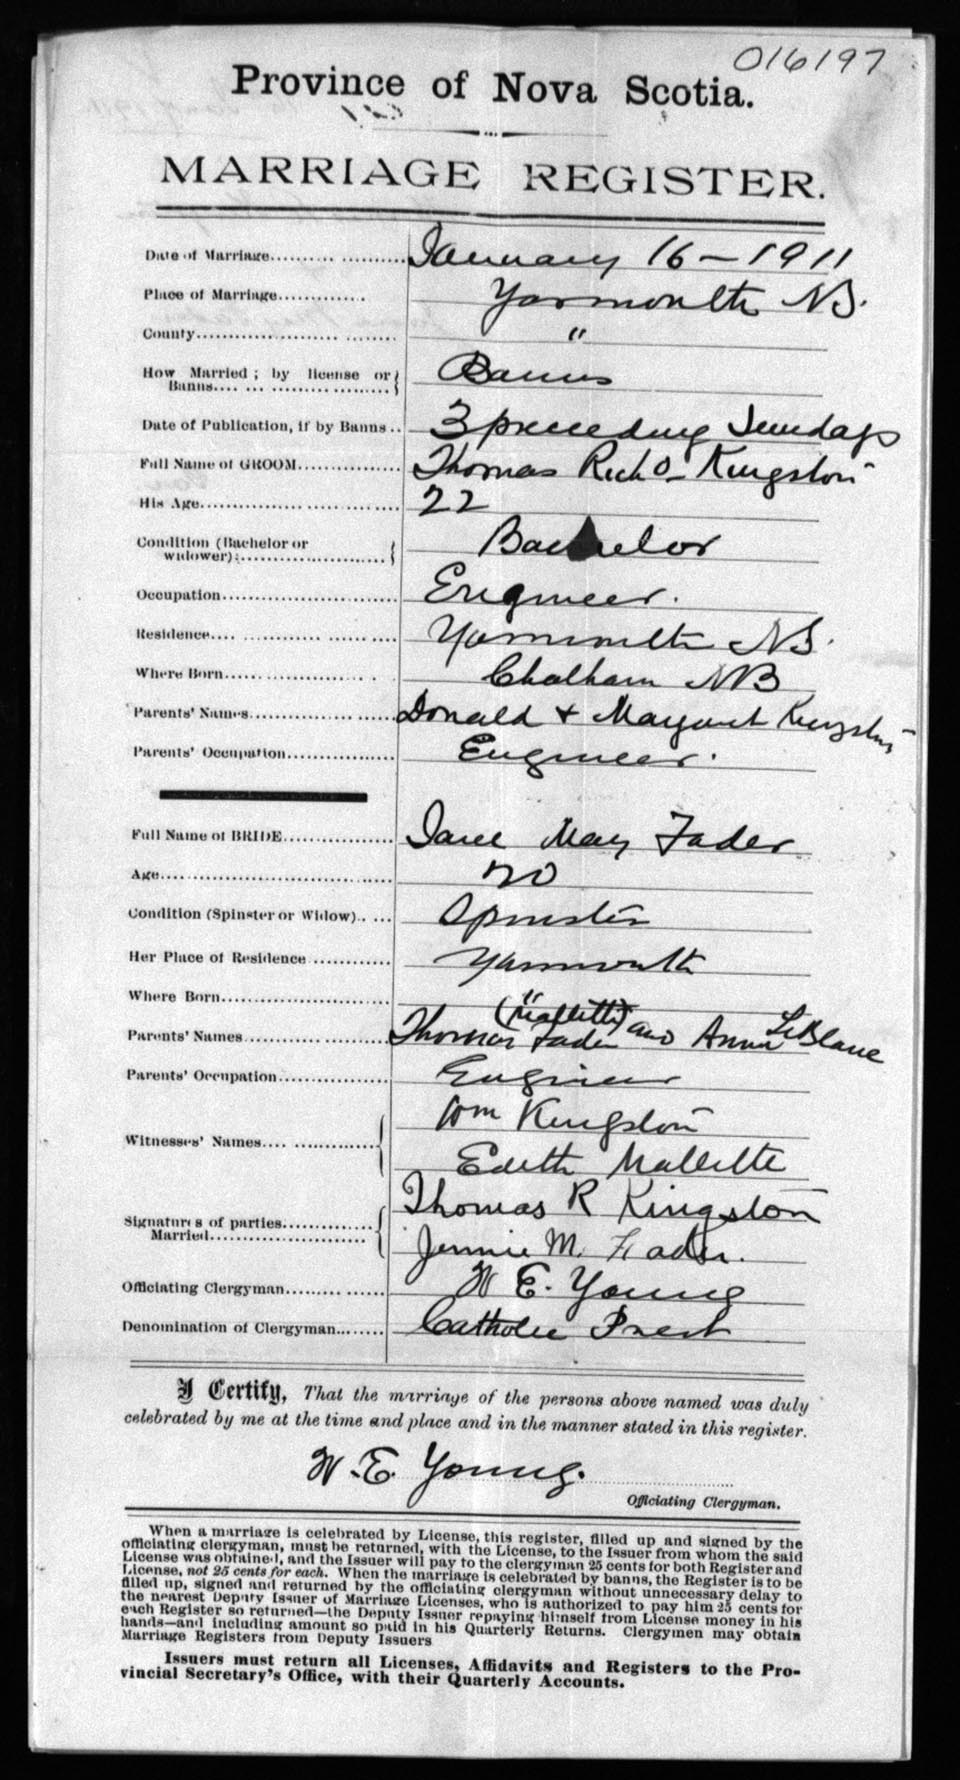 016197
Province of Nova Scotia.
MARRIAGE REGISTER.
Date of Marriage.................... January 16 – 1911
Place of Marriage............. Yarmouth NS.
County............................ "
How Married; by license or
Banns.... ... .................... Banns
Date of Publication, if by Banns .. 3 preceding Sundays
Full Name of GROOM............... Thomas Rich'd – Kingston
His Age............................ 22
Condition (Bachelor or
widower):........................ Bachelor
Occupation......................... Engineer.
Residence.... ............ ........ Yarmouth NS.
Where Born........................ Chatham NB
Parents' Names............... ...... Donald + Margaret Kingston
Parents' Occupation................. Engineer.
Full Name of BRIDE................ Jane May Fader
Age................................. 20
Condition (Spinster or Widow).. ... Spinster
Her Place of Residence ............ Yarmouth
Where Born......................... "
(Mallette) LeBlanc
Parents' Names..................... Thomas Fader and Annie
Parents' Occupation................ Engineer
Wm Kingston
Witnesses' Names.... ..............
Edith Mallette
Thomas R Kingston
Signatures of parties..............
Married.......................... Jennie M. Fader.
Officiating Clergyman......... ..... W E. Young
Denomination of Clergyman......... Catholic Priest
I Certify, That the marriage of the persons above named was duly
celebrated by me at the time and place and in the manner stated in this register.
W. E. Young.
Officiating Clergyman.
When a marriage is celebrated by License, this register, filled up and signed by the
officiating clergyman, must be returned, with the License, to the Issuer from whom the said
License was obtained, and the Issuer will pay to the clergyman 25 cents for both Register and
License, not 25 cents for each. When the marriage is celebrated by banns, the Register is to be
filled up, signed and returned by the officiating clergyman without unnecessary delay to
the nearest Deputy Issuer of Marriage Licenses, who is authorized to pay him 25 cents for
each Register so returned—the Deputy Issuer repaying himself from License money in his
hands—and including amount so paid in his Quarterly Returns. Clergymen may obtain
Marriage Registers from Deputy Issuers
Issuers must return all Licenses, Affidavits and Registers to the Pro-
vincial Secretary's Office, with their Quarterly Accounts.